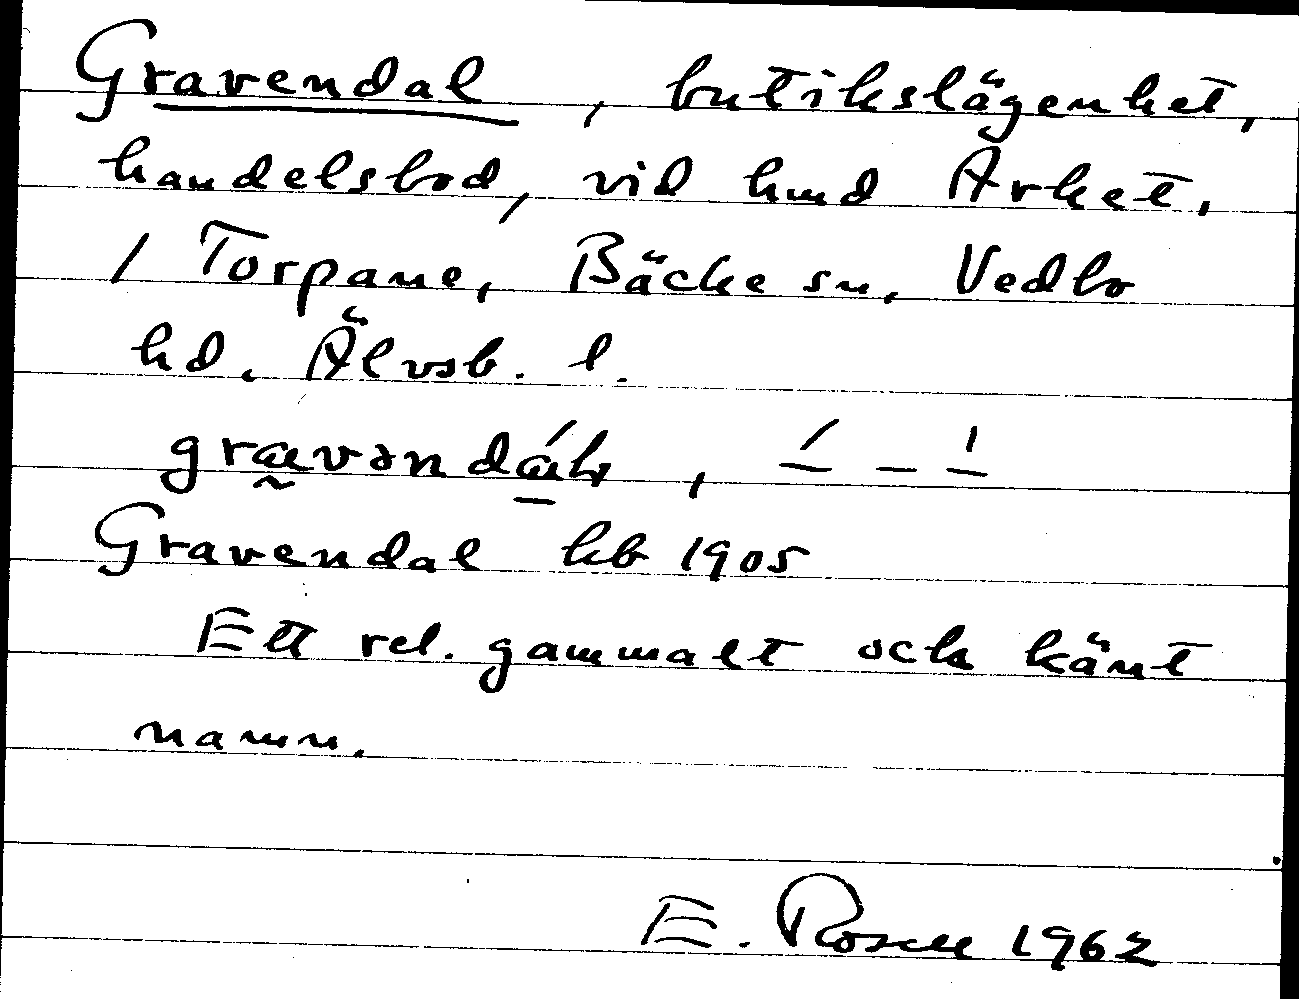 Gravendal, butikslägenhet,
handelsbod, vid hmd Arket,
/ Torpane, Bäcke sn, Vedbo
hd. Älvsb. l.
Gravendal kb 1905
Ett rel. gammalt och känt
namn.
E. Rosell 1962